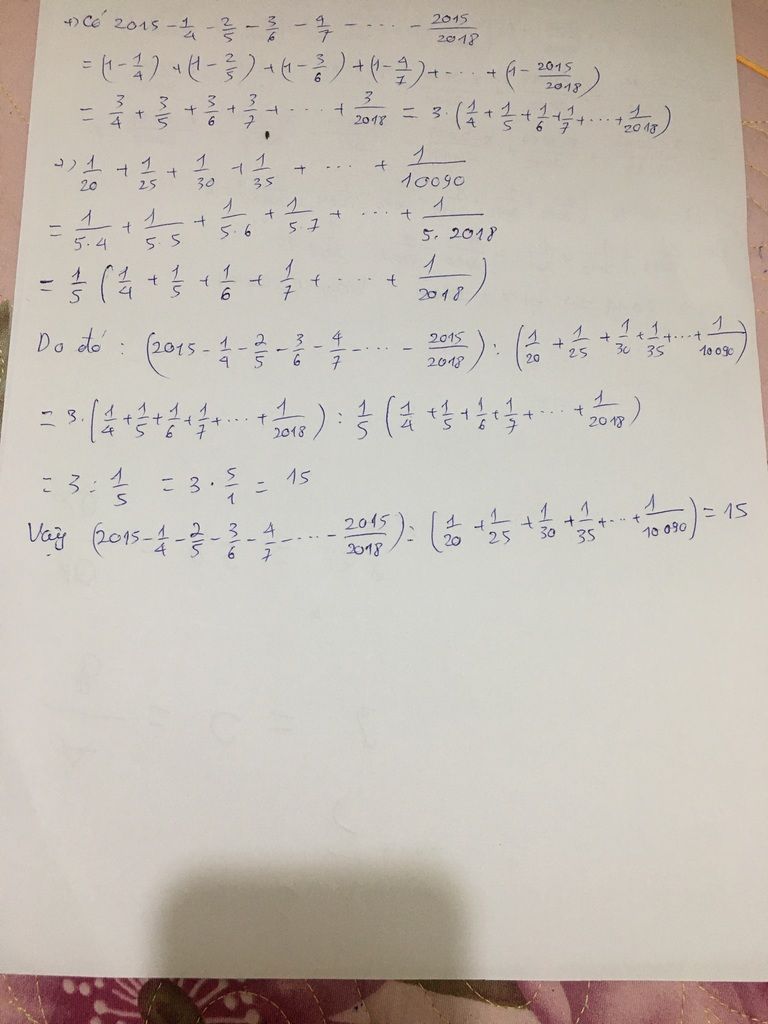 +) Có 2015 - 1/4 - 2/5 - 3/6 - 4/7 - ... - 2015/2018
= (1 - 1/4) + (1 - 2/5) + (1 - 3/6) + (1 - 4/7) + ... + (1 - 2015/2018)
= 3/4 + 3/5 + 3/6 + 3/7 + ... + 3/2018 = 3 . (1/4 + 1/5 + 1/6 + 1/7 + ... + 1/2018)
+) 1/20 + 1/25 + 1/30 + 1/35 + ... + 1/10090
= 1/5.4 + 1/5.5 + 1/5.6 + 1/5.7 + ... + 1/5.2018
= 1/5 (1/4 + 1/5 + 1/6 + 1/7 + ... + 1/2018)
Do đó : (2015 - 1/4 - 2/5 - 3/6 - 4/7 - ... - 2015/2018) : (1/20 + 1/25 + 1/30 + 1/35 + ... + 1/10090)
= 3. (1/4 + 1/5 + 1/6 + 1/7 + ... + 1/2018) : 1/5 (1/4 + 1/5 + 1/6 + 1/7 + ... + 1/2018)
= 3 : 1/5 = 3 . 5/1 = 15
Vậy (2015 - 1/4 - 2/5 - 3/6 - 4/7 - ... - 2015/2018) : (1/20 + 1/25 + 1/30 + 1/35 + ... + 1/10090) = 15